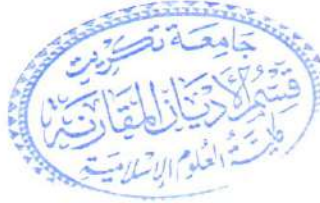 جامعة تكريت
قسم الأديان المقارنة
كلية العلوم الإسلامية